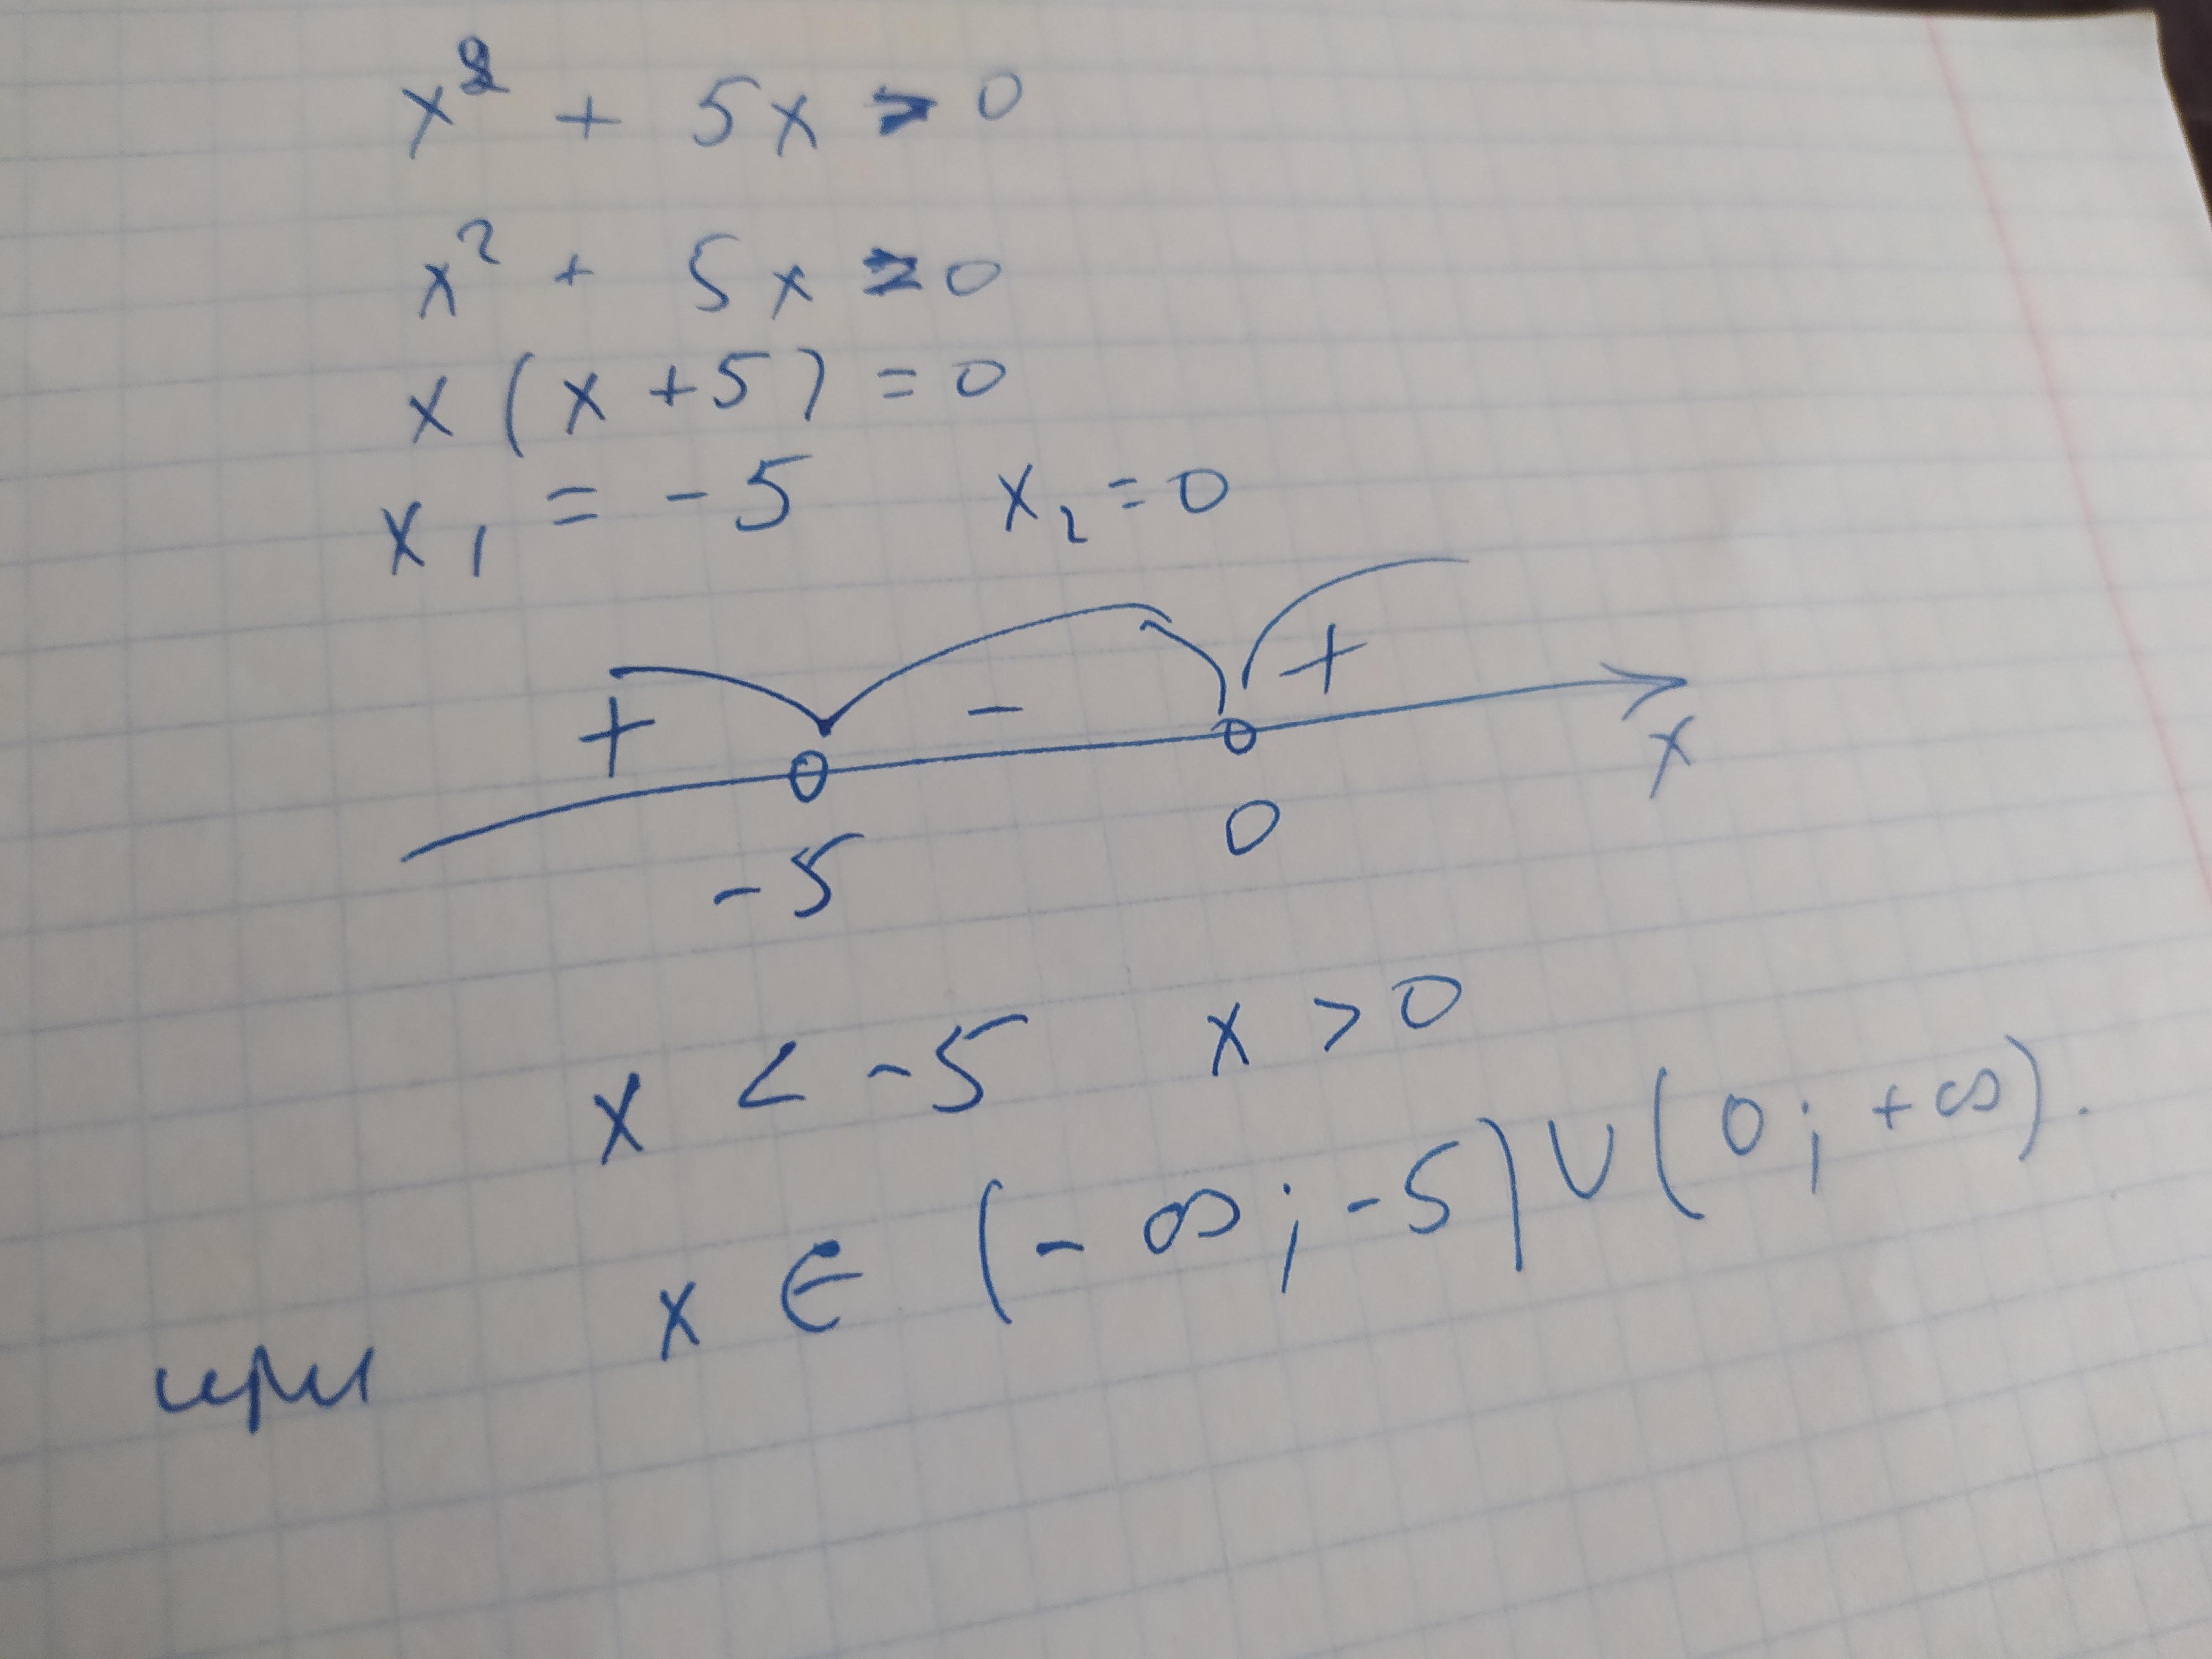 x² + 5x > 0
x² + 5x = 0
x (x + 5) = 0
x₁ = -5 x₂ = 0
+ - +
-5 0 x
x < -5 x > 0
x ∈ (-∞; -5) ∪ (0; +∞).
при